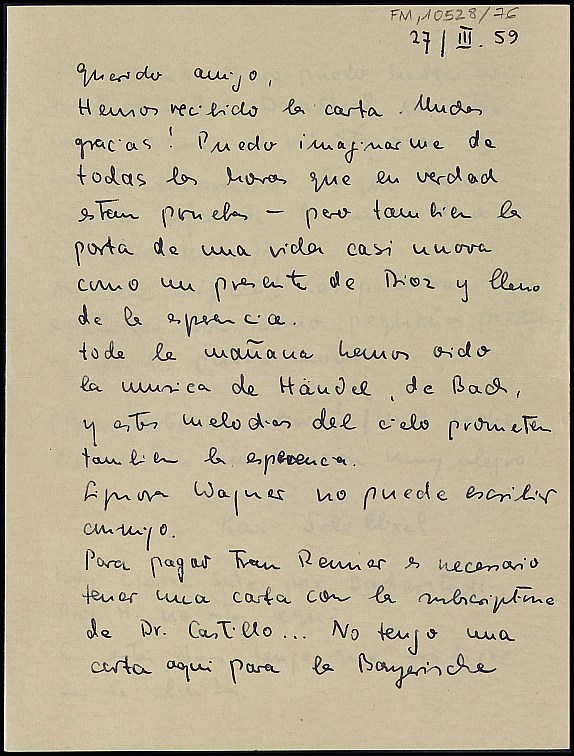 FM, 10528/76
27/III. 59
Querido amigo,
Hemos recibido la carta. Mudas
gracias! Puedo imaginarme de
todas las horas que en verdad
estan pruebas – pero tambien la
porta de una vida casi nuova
como un presente de Dioz y lleno
de la esperencia.
toda la mañana hemos oido
la musica de Händel, de Bach,
y estes melodias del cielo prometen
tambien la esperencia.
Signora Wagner no puede escribir
conmigo.
Para pagar Frau Renner es necessario
tener una carta con la subscriptune
de Dr. Castillo... No tengo una
carta aqui para la Bayerische